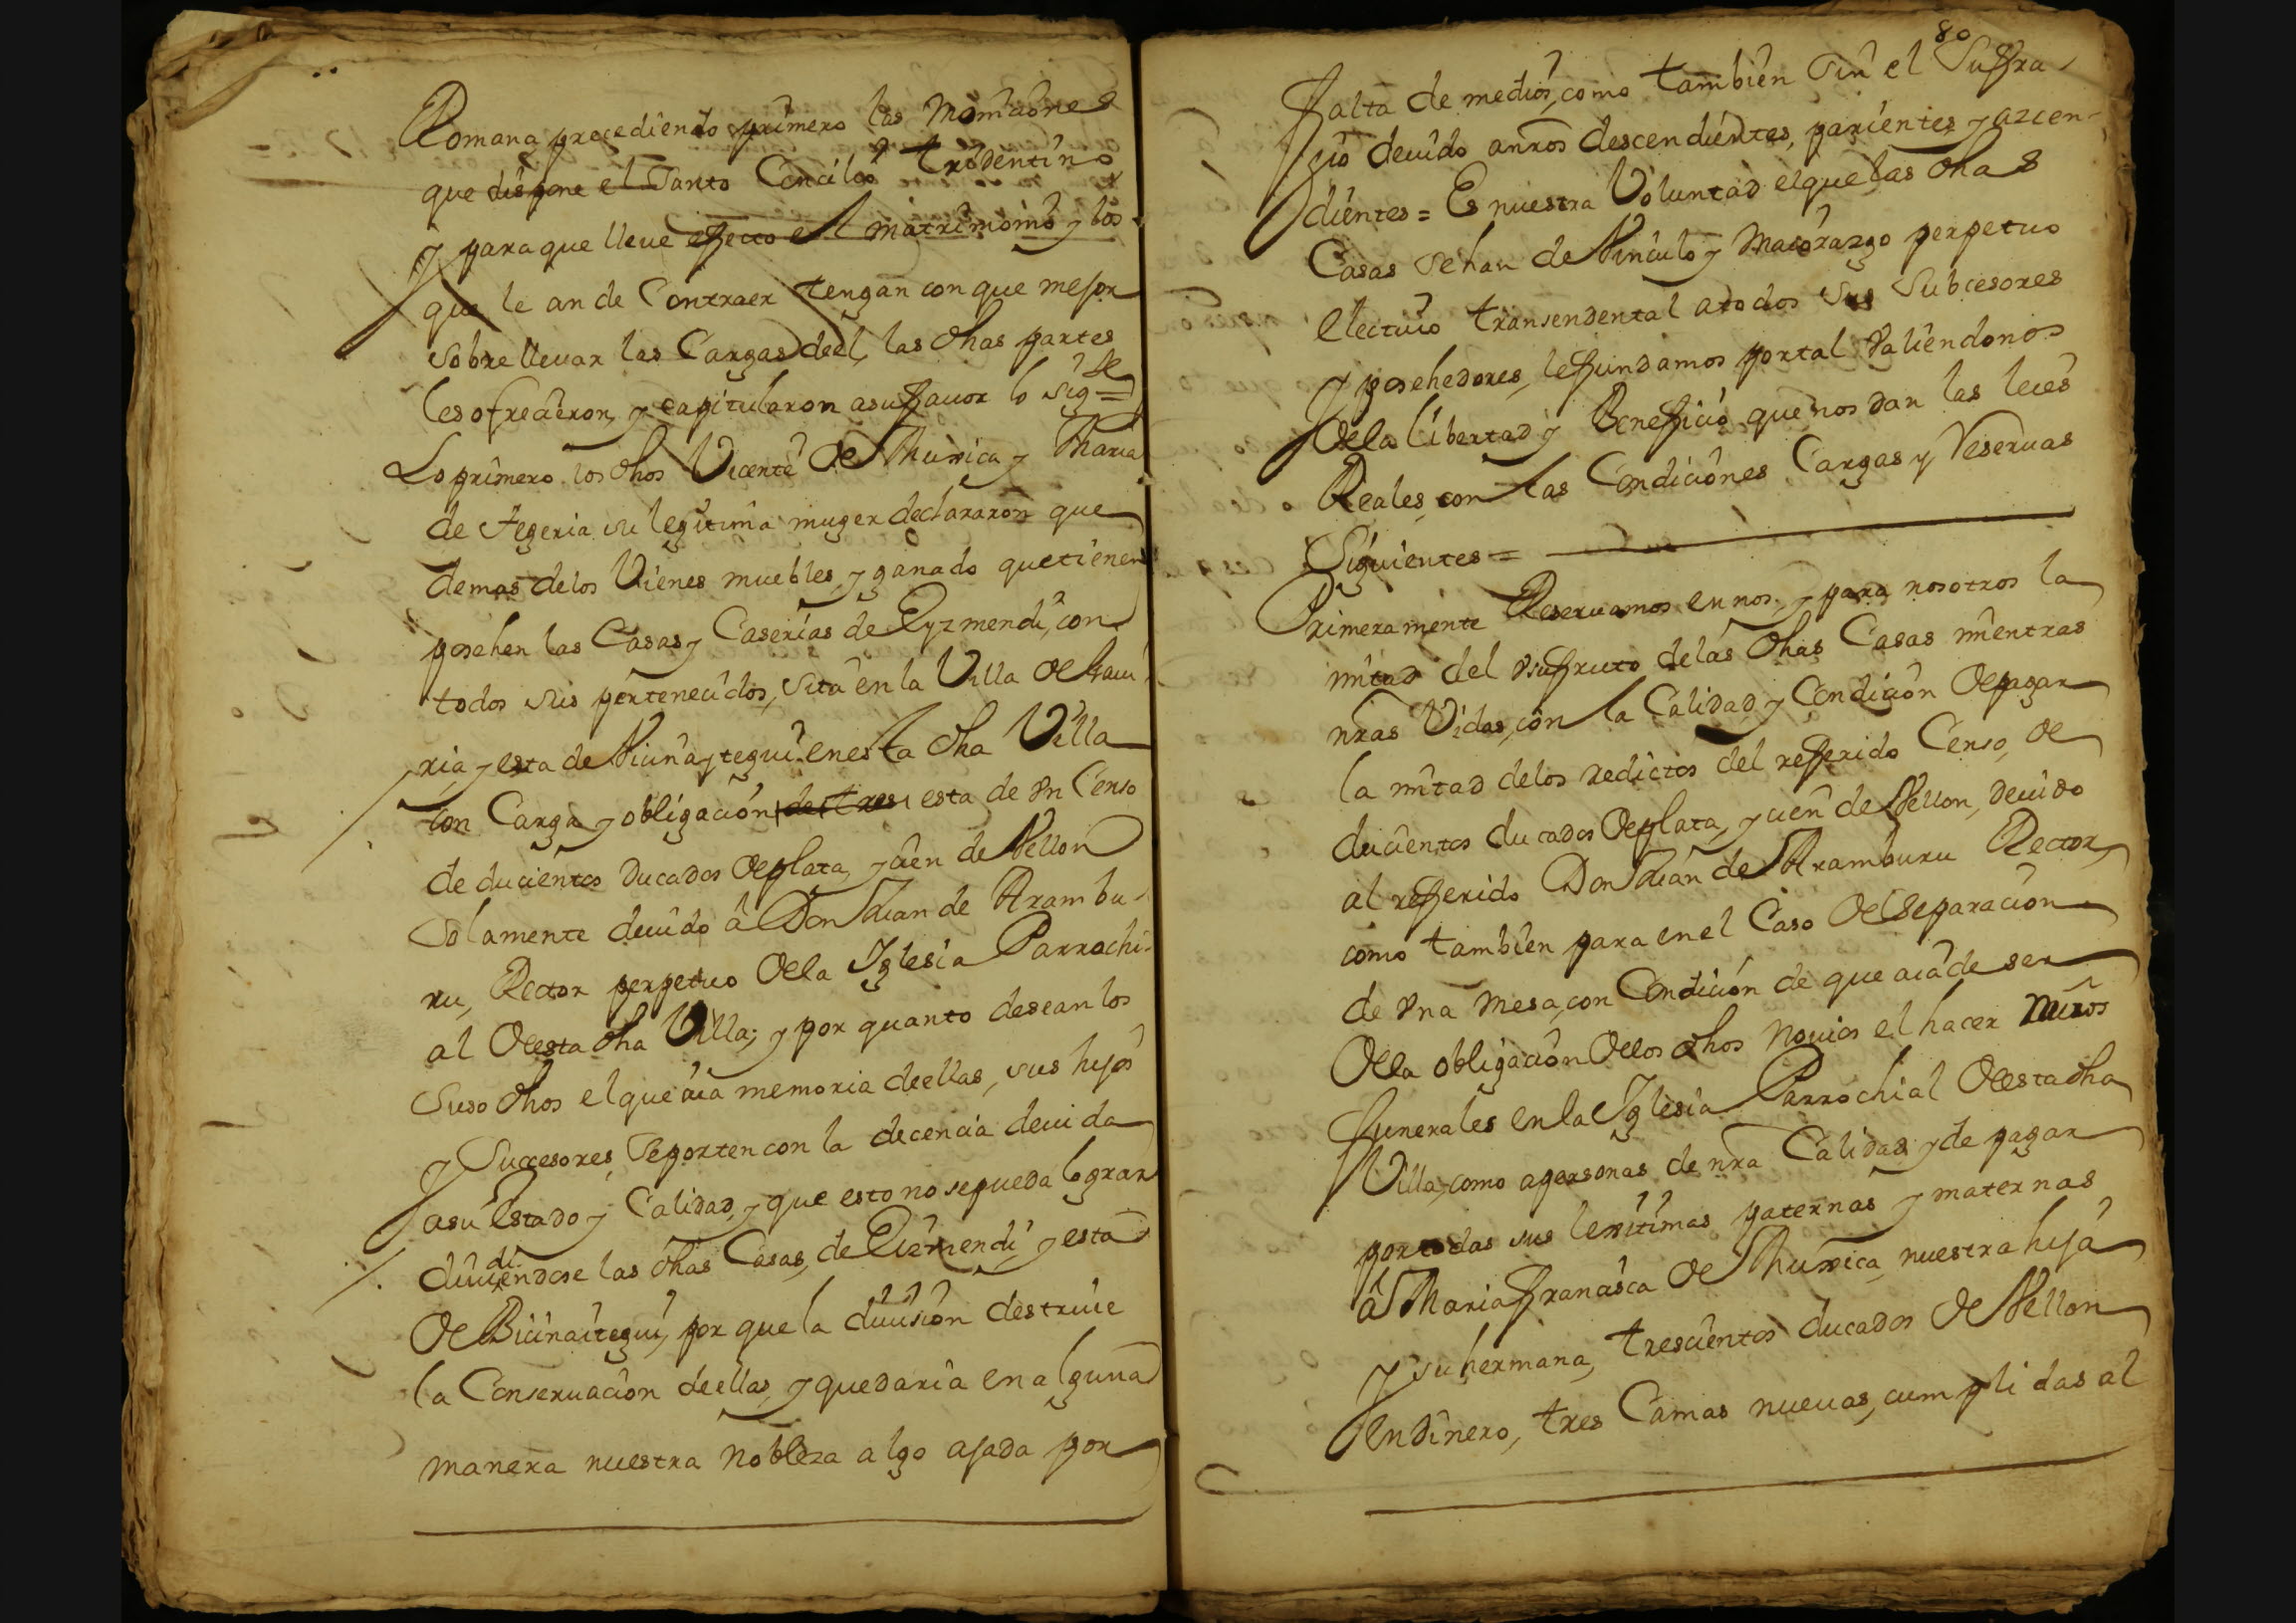 Romana, precediendo primero las moniciones
que dispone el Santo Concilio Tridentino
y para que lleue effecto el matrimonio y los
que le an de Contraer tengan con que mejor
sobrelleuar las Cargas deel, las dhas partes
les ofrecieron, y capitularon a su ffauor lo sigte=
Lo primero los dhos Vicente de Muxica y Maria
de Segeria su legitima muger declararon que
demas delos Vienes muebles, y ganado que tienen
posehen las Casas y Caserias de Eyzmendi, con
todos sus pertenecidos, sita en la Villa de
ria, y esta de Viicinaytegui en esta dha Villa
con Carga y obligacion de tres esta de vn Censo
de ducientos Ducados de plata, y cien de Vellon
Solamente deuido â Don Juan de Arambu-
ru, Rector perpetuo dela Iglesia Parrochi-
al de esta dha Villa; y por quanto desean los
Suso dhos el que aia memoria deellas, sus hijos
y Succesores, se porten con la decencia deuida
asu Estado y Calidad, y que esto no se pueda lograr
diuidiendose las dhas Casas, de Eizmendi y esta
de Biicinaitegui, por que la diuision destruie
la Conseruacion deellas, y quedaria en alguna
manera nuestra nobleza algo ajada por
80
ffalta de medios, como tambien sin el Suffra-
gio deuido anros descendientes, parientes, y azcen-
dientes = Es nuestra Voluntad el que las dhas
Casas se han de Vinculo y Maiorazgo perpetuo
electiuo transendental atodos sus Subcesores
y posehedores, le ffundamos por tal valiendonos
dela libertad y Beneficio que nos dan las leies
Reales, con las Condiciones Cargas y Reseruas
Siguientes =
Primeramente Reseruamos en nos, y para nosotros la
mitad del vsuffruto delas dhas Casas mientras
nras Vidas, con la Calidad y Condicion de pagar
la mitad delos redictos del refferido Censo, de
ducientos ducados de plata, y cien de Vellon, deuido
al refferido Don Juan de Aramburu Rector,
como tambien para en el Caso de Separacion
de vna mesa, con Condicion de que aia de ser
dela obligacion delos dhos nouios el hacer nuros
ffunerales en la Iglesia Parrochial de esta dha
Villa, como apersonas de nra Calidad, y de pagar
por todas sus lexitimas paternas y maternas
â Maria Francisca de Muxica, nuestra hija
y su hermana, trescientos ducados de Vellon
en dinero, tres Camas nueuas, cumplidas al